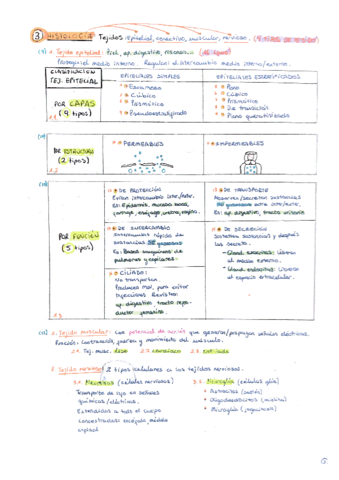 ③ HISTOLOGÍA Tejidos epitelial, conectivo, muscular, nervioso.
(1) 1. Tejido epitelial: Piel, ap. digestivo, respiratorio
Protege el medio interno. Regulan el intercambio medio interno/externo.
CLASIFICACIÓN TEJ. EPITELIAL
EPITELIALES SIMPLES
EPITELIALES ESTRATIFICADOS
POR CAPAS (9 tipos)
Escamoso
Cúbico
Prismático
Pseudoestratificado
Plano
Cúbico
Prismático
De transición
Plano queratinizado
1.1
POR ESTRUCTURA (2 tipos)
PERMEABLES
IMPERMEABLES
1.2
POR FUNCIÓN (5 tipos)
DE PROTECCIÓN
Evitan intercambio inter./exter.
Ex: Epidermis, mucosa bucal, faringe, esófago, uretra, vagina.
DE TRANSPORTE
sustancias entre inter/exter.
Ex: ap. digestivo, tracto urinario
DE INTERCAMBIO
rápido de sustancias
Ex: Vasos sanguíneos de pulmones y capilares.
DE SECRECIÓN
Sintetiza sustancias y después las secreta.
- Gland. exocrinas: Liberan al medio externo.
- Gland. endocrinas: Liberan al espacio extracelular.
CILIADO:
No transportan
Producen moc. para evitar infecciones. Revisten:
ap. digestivo, tracto reproductor femenino.
1.3
2. Tejido muscular: Con potencial de acción que generan/propagan señales eléctricas.
Función: contracción, fuerza y movimiento del músculo.
2.1. Tej. musc. liso 2.2. cardíaco 2.3. estriado
3. Tejido nervioso: 2 tipos celulares en los tejidos nerviosos.
3.1. Neuronas (células nerviosas)
Transporte de info en señales químicas/eléctricas.
Extendidas a todo el cuerpo
Concentradas encéfalo, médula espinal
3.2. Neuroglía (células glía)
Astrocitos
Oligodendrocitos (mielina)
Microglía